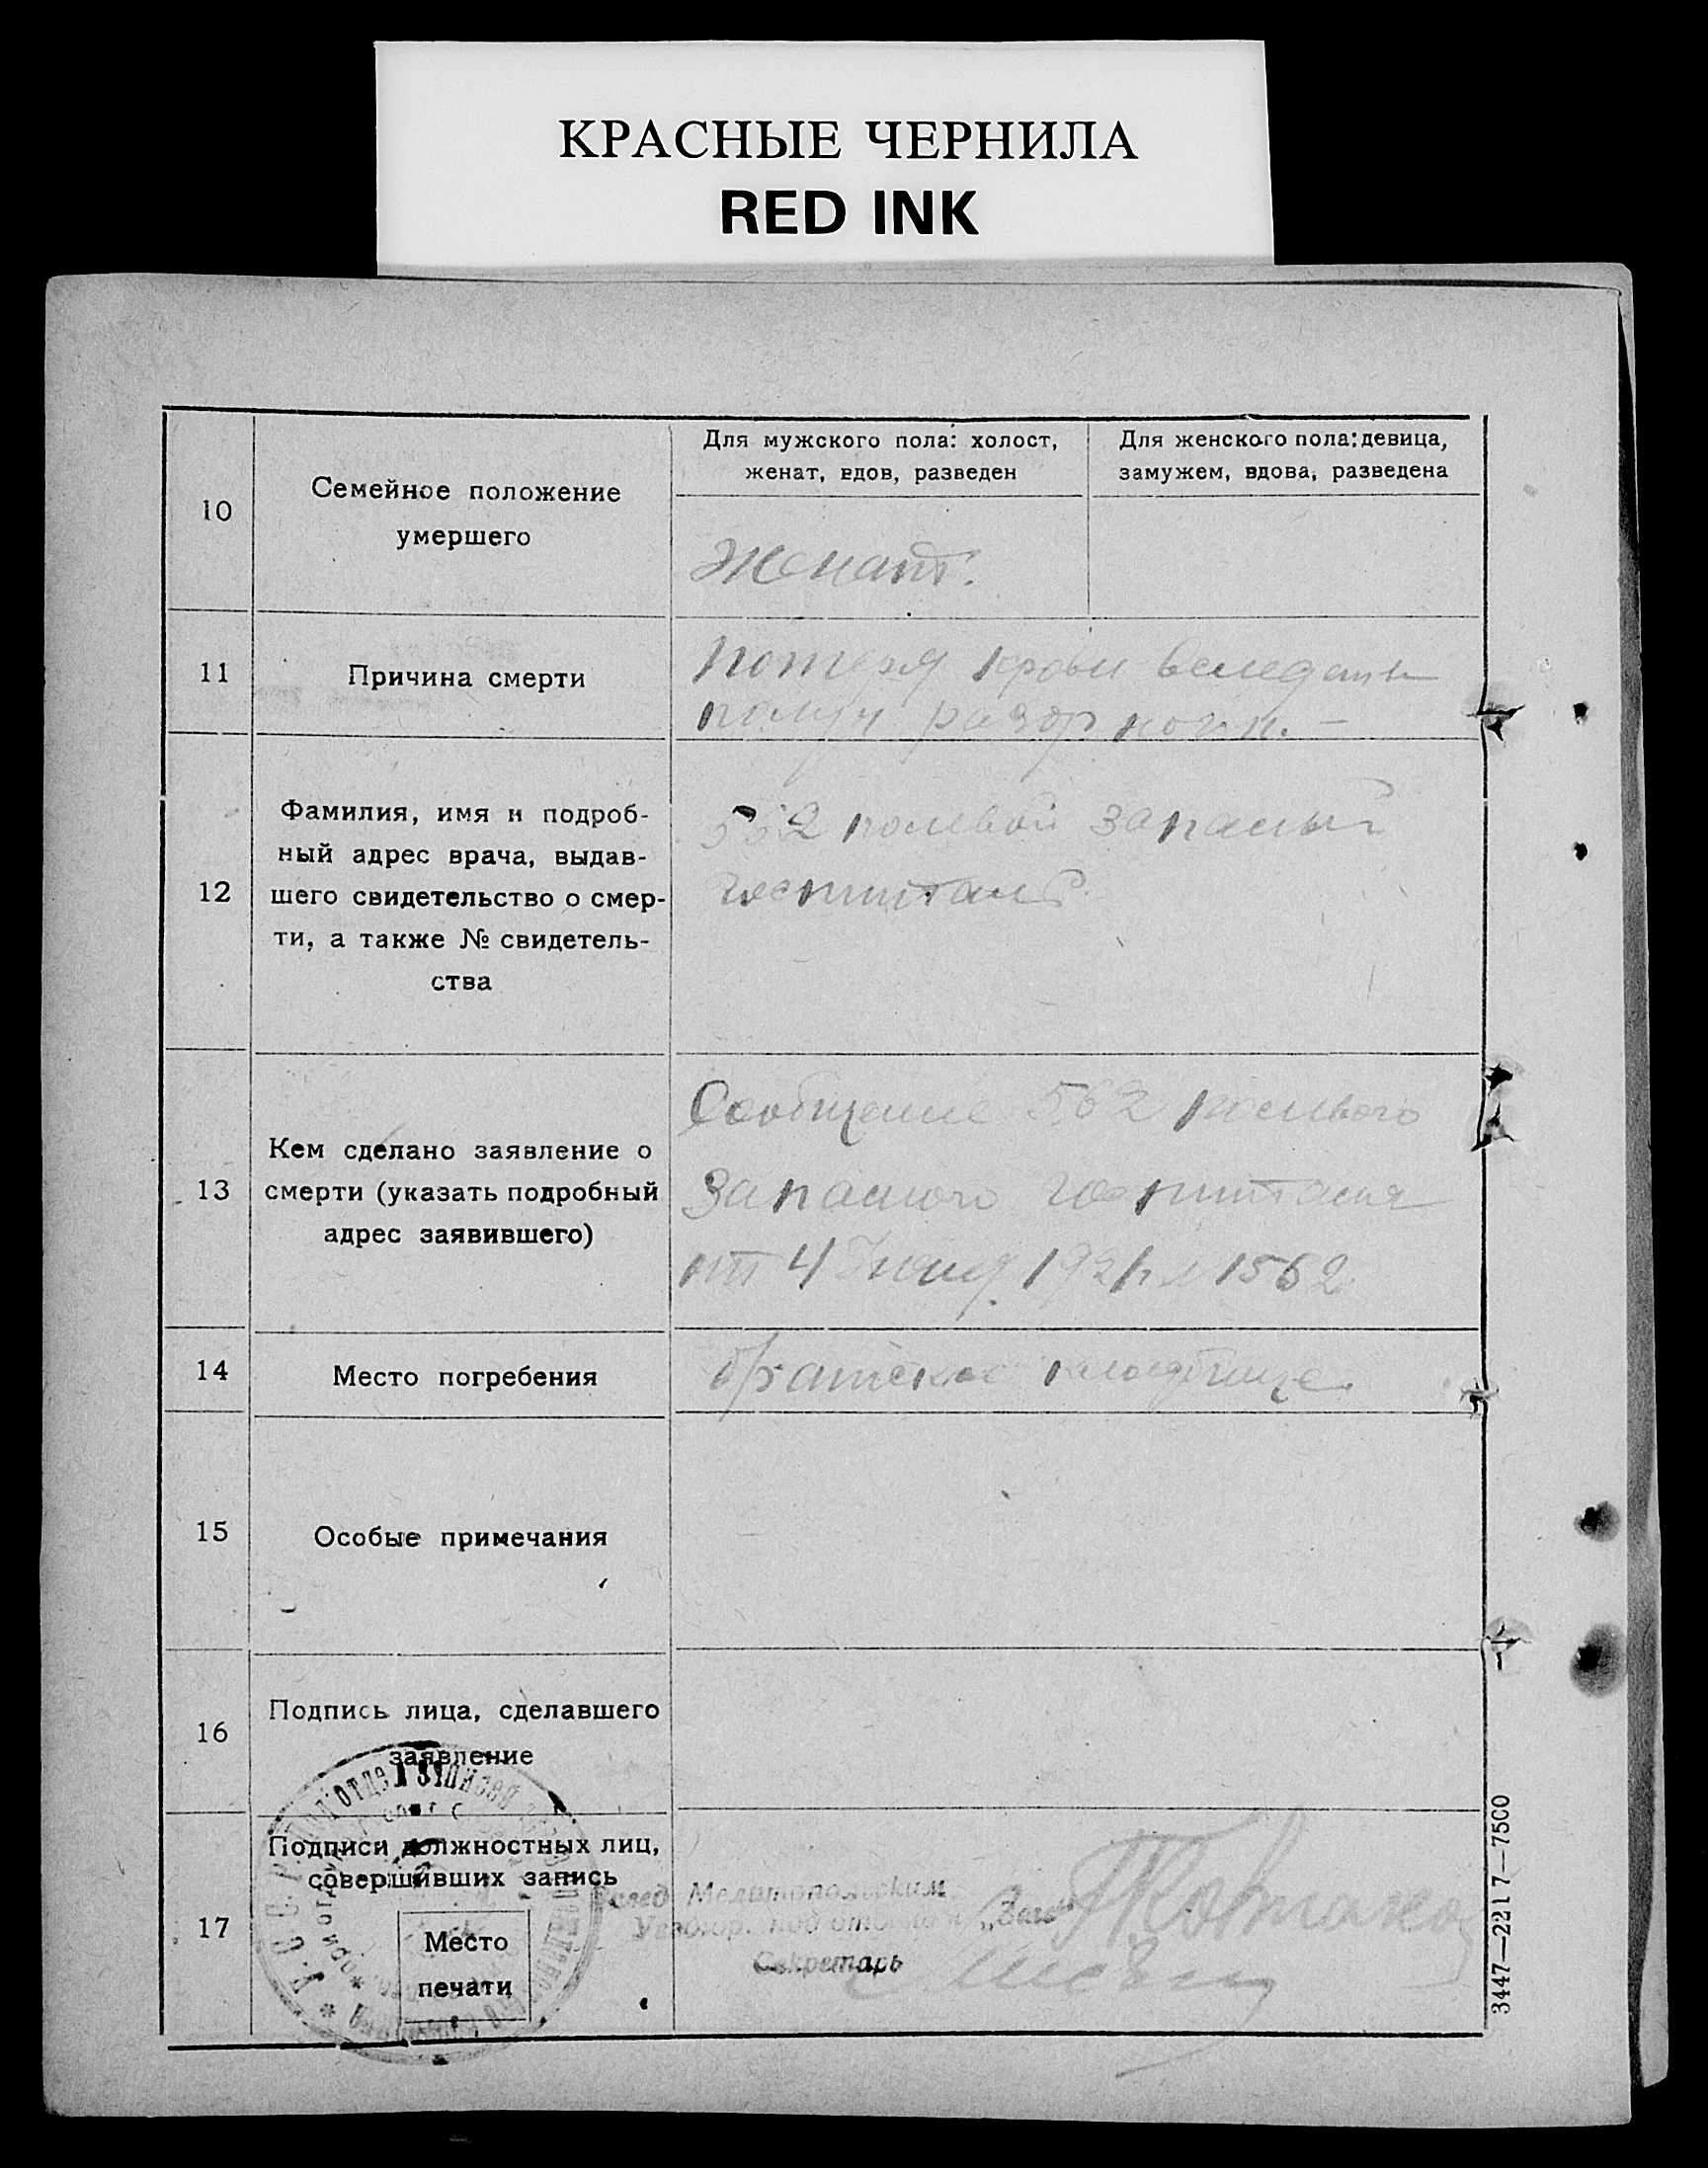 КРАСНЫЕ ЧЕРНИЛА
RED INK
10
Семейное положение
умершего
Для мужского пола: холост,
женат, вдов, разведен
Для женского пола: девица,
замужем, вдова, разведена
Женат.
11
Причина смерти
Потеря крови вследств
получ разор ноги. —
12
Фамилия, имя и подроб-
ный адрес врача, выдав-
шего свидетельство о смер-
ти, а также № свидетель-
ства
полевой запасный
госпиталь
13
Кем сделано заявление о
смерти (указать подробный
адрес заявившего)
Сообщение 562 полевого
Запасного госпиталя
от 4 192 1562
14
Место погребения
братское кладбище
15
Особые примечания
16
Подпись лица, сделавшего
заявление
17
Подписи должностных лиц,
совершивших запись
Место
печати
Завед. Мелитопольским
под
Секретарь
3447—2217—7500